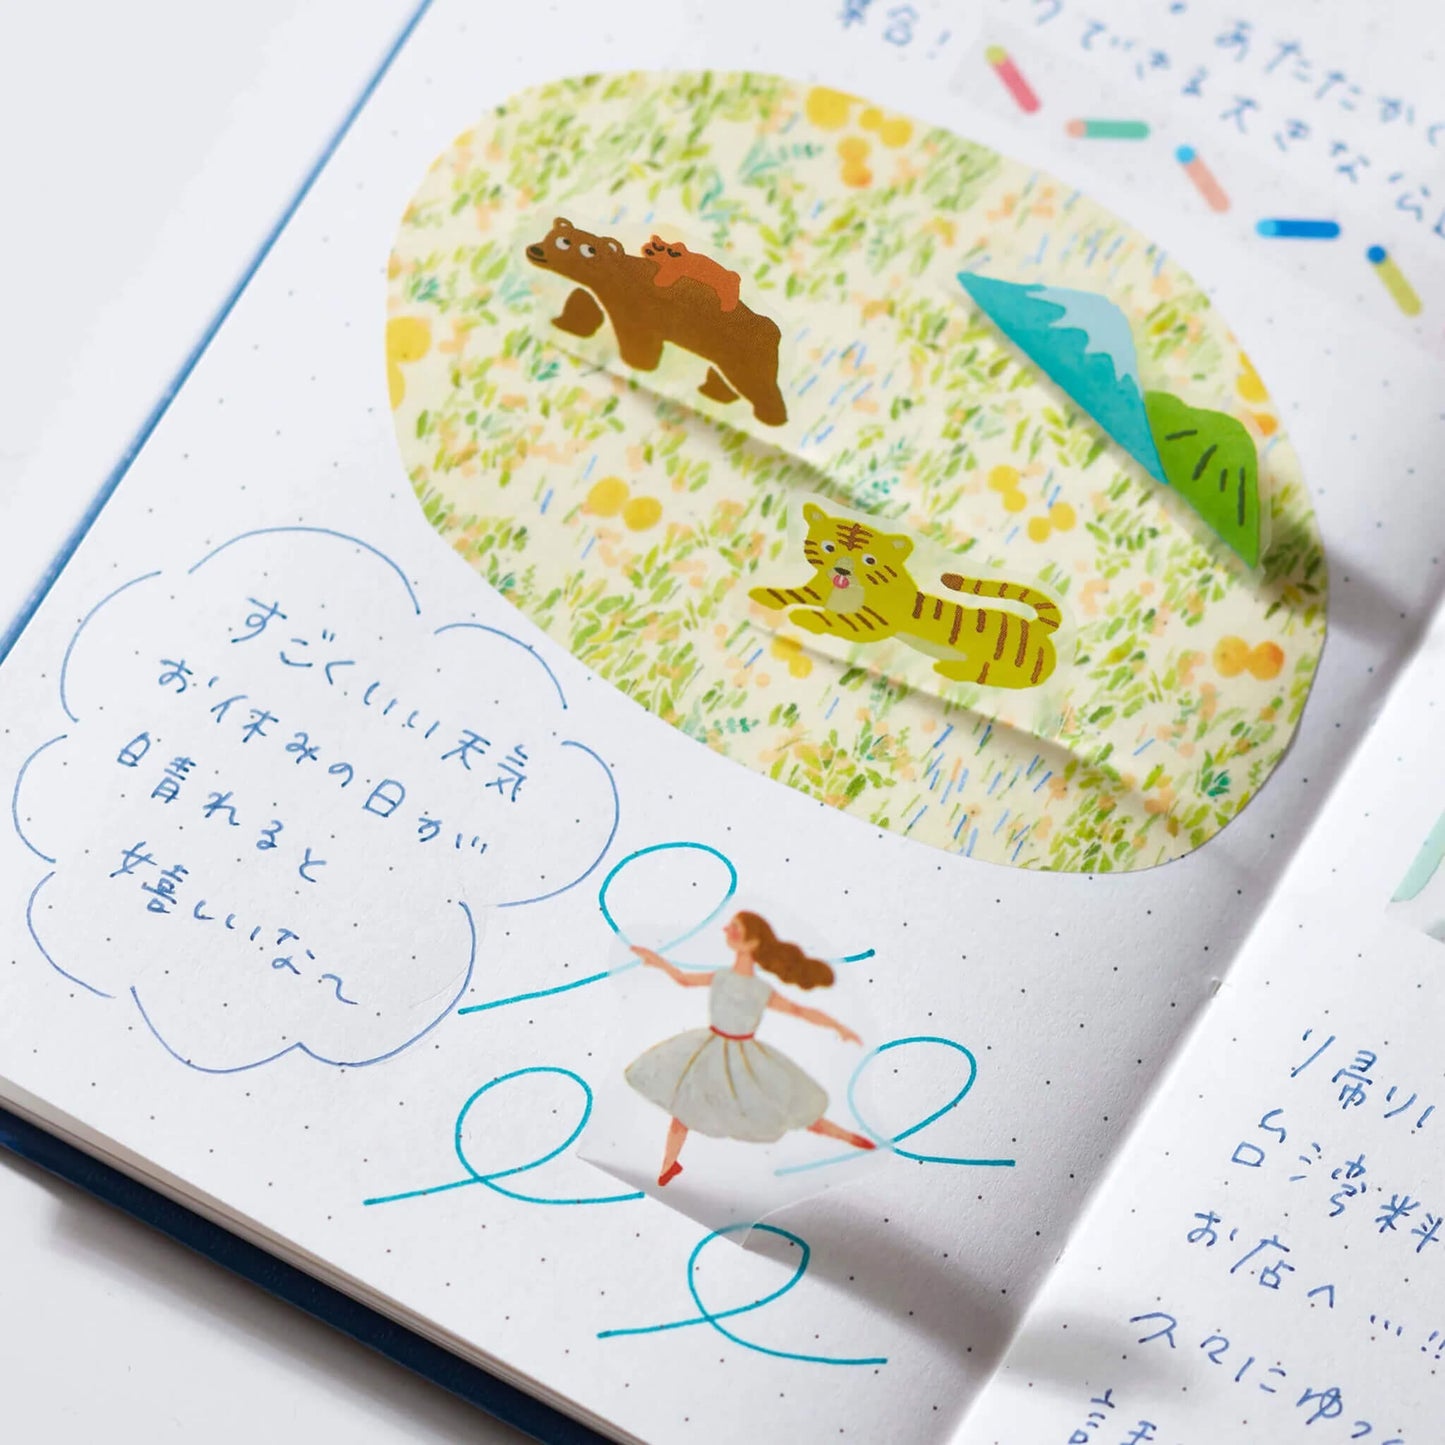 ・あたたかく
クできる大きな公
集合！
すごくいい天気
お休みの日が…
日晴れると
嬉しいな〜
り帰り
台湾料
お店へ…!!
スマにゆっ